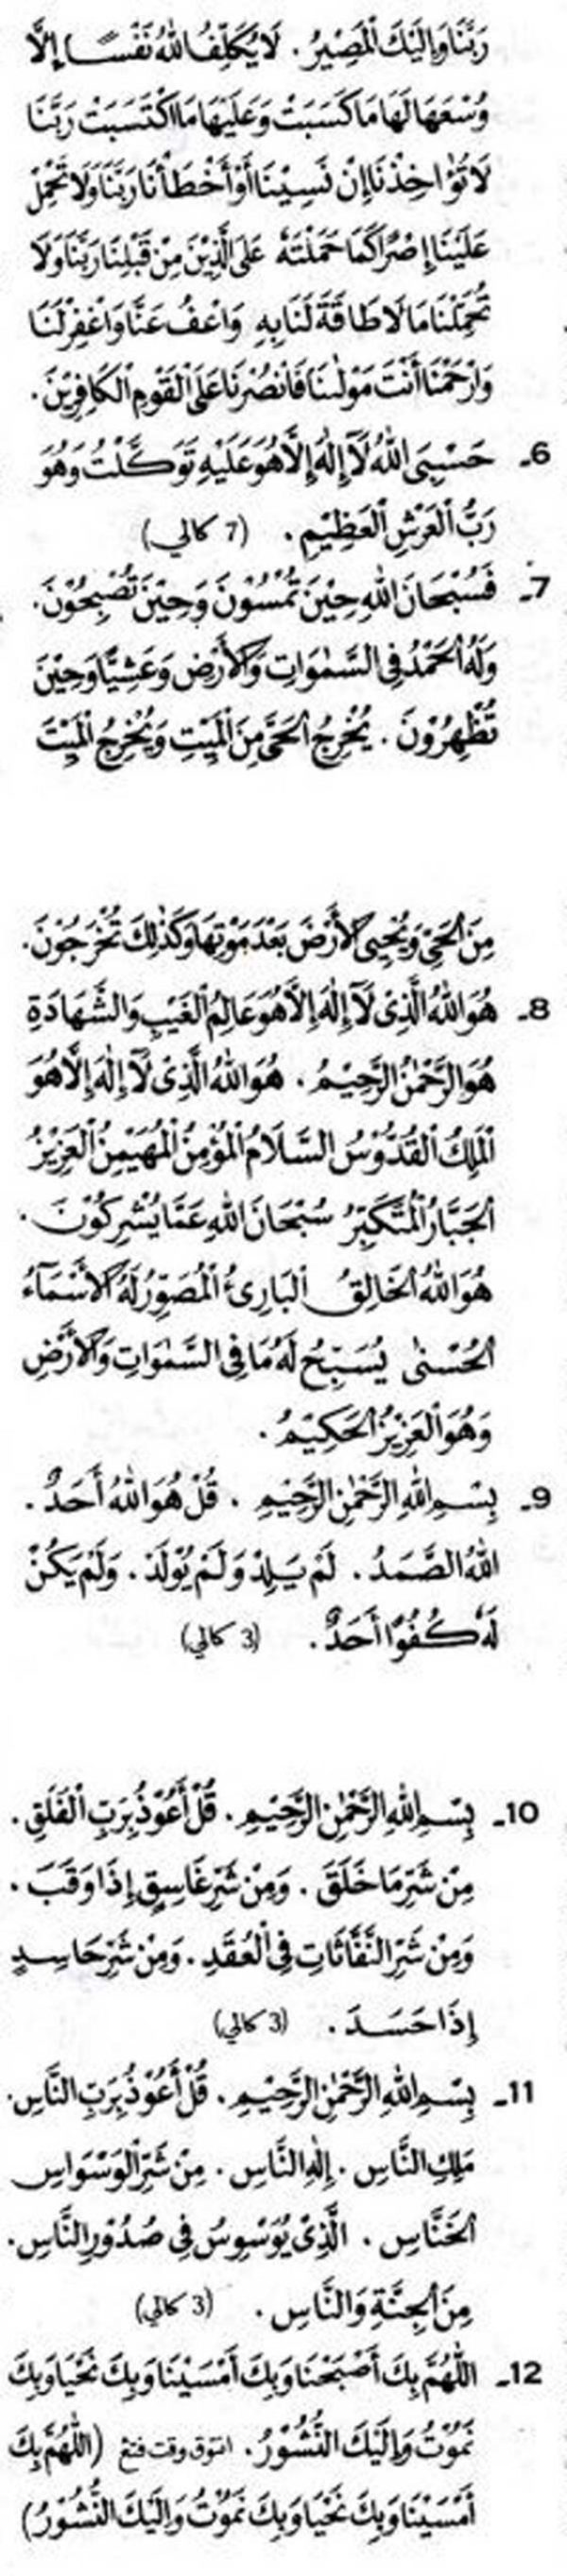 رَبَّنَا وَإِلَيْكَ الْمَصِيْرُ . لَا يُكَلِّفُ اللهُ نَفْسًا إِلَّا
وُسْعَهَا لَهَا مَا كَسَبَتْ وَعَلَيْهَا مَا اكْتَسَبَتْ رَبَّنَا
لَا تُؤَاخِذْنَا إِنْ نَسِيْنَا أَوْ أَخْطَأْنَا رَبَّنَا وَلَا تَحْمِلْ
عَلَيْنَا إِصْرًا كَمَا حَمَلْتَهُ عَلَى الَّذِيْنَ مِنْ قَبْلِنَا رَبَّنَا وَلَا
تُحَمِّلْنَا مَا لَا طَاقَةَ لَنَا بِهِ وَاعْفُ عَنَّا وَاغْفِرْ لَنَا
وَارْحَمْنَا أَنْتَ مَوْلٰىنَا فَانْصُرْنَا عَلَى الْقَوْمِ الْكَافِرِيْنَ .
6ـ حَسْبِيَ اللهُ لَآ إِلٰهَ إِلَّا هُوَ عَلَيْهِ تَوَكَّلْتُ وَهُوَ
رَبُّ الْعَرْشِ الْعَظِيْمِ . (7 كالي)
7ـ فَسُبْحَانَ اللهِ حِيْنَ تُمْسُوْنَ وَحِيْنَ تُصْبِحُوْنَ .
وَلَهُ الْحَمْدُ فِى السَّمٰوَاتِ وَالْأَرْضِ وَعَشِيًّا وَحِيْنَ
تُظْهِرُوْنَ . يُخْرِجُ الْحَيَّ مِنَ الْمَيِّتِ وَيُخْرِجُ الْمَيِّتَ
مِنَ الْحَيِّ وَيُحْيِى الْأَرْضَ بَعْدَ مَوْتِهَا وَكَذٰلِكَ تُخْرَجُوْنَ .
8ـ هُوَ اللهُ الَّذِىْ لَآ إِلٰهَ إِلَّا هُوَ عَالِمُ الْغَيْبِ وَالشَّهَادَةِ
هُوَ الرَّحْمٰنُ الرَّحِيْمُ . هُوَ اللهُ الَّذِىْ لَآ إِلٰهَ إِلَّا هُوَ
الْمَلِكُ الْقُدُّوْسُ السَّلَامُ الْمُؤْمِنُ الْمُهَيْمِنُ الْعَزِيْزُ
الْجَبَّارُ الْمُتَكَبِّرُ سُبْحَانَ اللهِ عَمَّا يُشْرِكُوْنَ .
هُوَ اللهُ الْخَالِقُ الْبَارِئُ الْمُصَوِّرُ لَهُ الْأَسْمَآءُ
الْحُسْنٰى يُسَبِّحُ لَهُ مَا فِى السَّمٰوَاتِ وَالْأَرْضِ
وَهُوَ الْعَزِيْزُ الْحَكِيْمُ .
9ـ بِسْمِ اللهِ الرَّحْمٰنِ الرَّحِيْمِ . قُلْ هُوَ اللهُ أَحَدٌ .
اللهُ الصَّمَدُ . لَمْ يَلِدْ وَلَمْ يُوْلَدْ . وَلَمْ يَكُنْ
لَهُ كُفُوًا أَحَدٌ . (3 كالي)
10ـ بِسْمِ اللهِ الرَّحْمٰنِ الرَّحِيْمِ . قُلْ أَعُوْذُ بِرَبِّ الْفَلَقِ .
مِنْ شَرِّ مَا خَلَقَ . وَمِنْ شَرِّ غَاسِقٍ إِذَا وَقَبَ .
وَمِنْ شَرِّ النَّفَّاثَاتِ فِى الْعُقَدِ . وَمِنْ شَرِّ حَاسِدٍ
إِذَا حَسَدَ . (3 كالي)
11ـ بِسْمِ اللهِ الرَّحْمٰنِ الرَّحِيْمِ . قُلْ أَعُوْذُ بِرَبِّ النَّاسِ .
مَلِكِ النَّاسِ . إِلٰهِ النَّاسِ . مِنْ شَرِّ الْوَسْوَاسِ
الْخَنَّاسِ . الَّذِىْ يُوَسْوِسُ فِى صُدُوْرِ النَّاسِ .
مِنَ الْجِنَّةِ وَالنَّاسِ . (3 كالي)
12ـ اَللّٰهُمَّ بِكَ أَصْبَحْنَا وَبِكَ أَمْسَيْنَا وَبِكَ نَحْيَا وَبِكَ
نَمُوْتُ وَإِلَيْكَ النُّشُوْرُ . انتوق وقت فتڠ (اَللّٰهُمَّ بِكَ
أَمْسَيْنَا وَبِكَ نَحْيَا وَبِكَ نَمُوْتُ وَإِلَيْكَ النُّشُوْرُ)